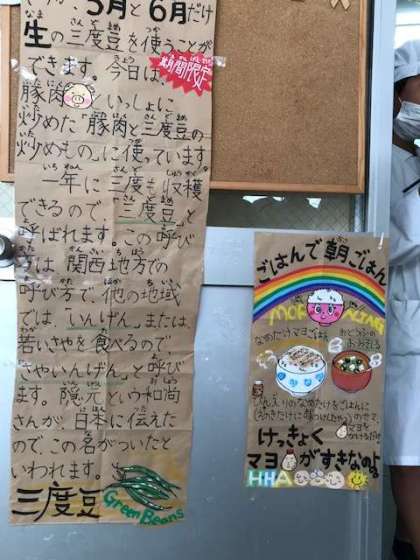 5月と6月だけ
生の三度豆を使うことが
できます。今日は、
期間限定
豚肉といっしょに
炒めた「豚肉と三度豆の
炒めもの」に使っています。
一年に三度も収穫
できるので「三度豆」と
呼ばれます。この呼び
方は関西地方での
呼び方で、他の地域
では、いんげん」または、
若いさやを食べるので、
「さやいんげん」と呼び
ます。隠元という和尚
さんが、日本に伝えた
ので、この名がついたと
いわれます。
三度豆
Green Beans
ごはんで朝ごはん
なめたけマヨごはん
びんえりのなめたけをごはんに
のせて
マヨを
かけるだけ
けっきょく
マヨがすきなのよ
HHA